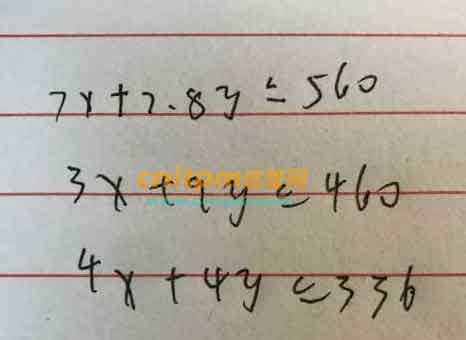 7x+7.8y≤560
3x+9y≤460
4x+4y≤336